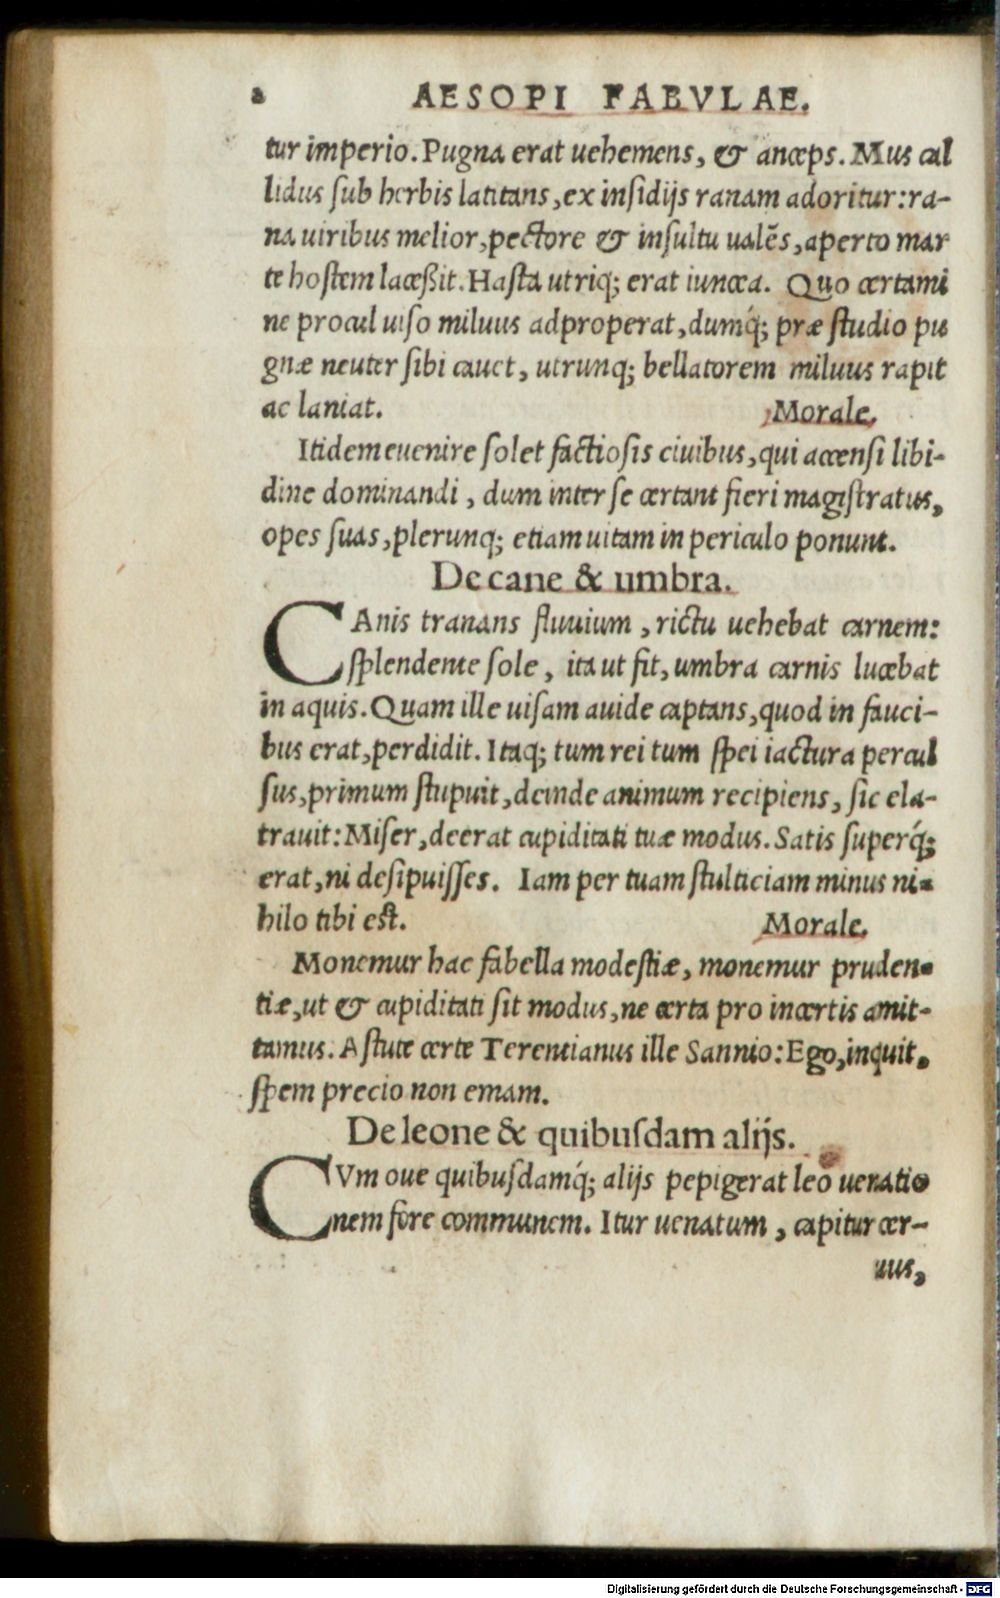 2 AESOPI FABVLAE.
tur imperio. Pugna erat uehemens, & anceps. Mus cal
lidus ſub herbis latitans, ex inſidijs ranam adoritur: ra-
na uiribus melior, pectore & inſultu ualẽs, aperto mar
te hoſtem laceßit. Haſta utriq; erat iuncea. Quo certami
ne procul uiſo miluus adproperat, dumq́; præ ſtudio pu
gnæ neuter ſibi cauet, utrunq; bellatorem miluus rapit
ac laniat. Morale.
Itidem euenire ſolet factioſis ciuibus, qui accenſi libi-
dine dominandi, dum inter ſe certant fieri magiſtratus,
opes ſuas, plerunq; etiam uitam in periculo ponunt.
De cane & umbra.
CAnis tranans fluuium, rictu uehebat carnem:
ſplendente ſole, ita ut fit, umbra carnis lucebat
in aquis. Quam ille uiſam auide captans, quod in fauci-
bus erat, perdidit. Itaq; tum rei tum ſpei iactura percul
ſus, primum ſtupuit, deinde animum recipiens, ſic ela-
trauit: Miſer, deerat cupiditati tuæ modus. Satis ſuperq́;
erat, ni deſipuiſſes. Iam per tuam ſtulticiam minus ni-
hilo tibi eſt. Morale.
Monemur hac fabella modeſtiæ, monemur pruden-
tiæ, ut & cupiditati ſit modus, ne certa pro incertis amit-
tamus. Aſtute certe Terentianus ille Sannio: Ego, inquit,
ſpem precio non emam.
De leone & quibuſdam alijs.
CVm oue quibuſdamq́; alijs pepigerat leo uenatio
nem fore communem. Itur uenatum, capitur cer-
uus,
Digitalisierung gefördert durch die Deutsche Forschungsgemeinschaft - DFG